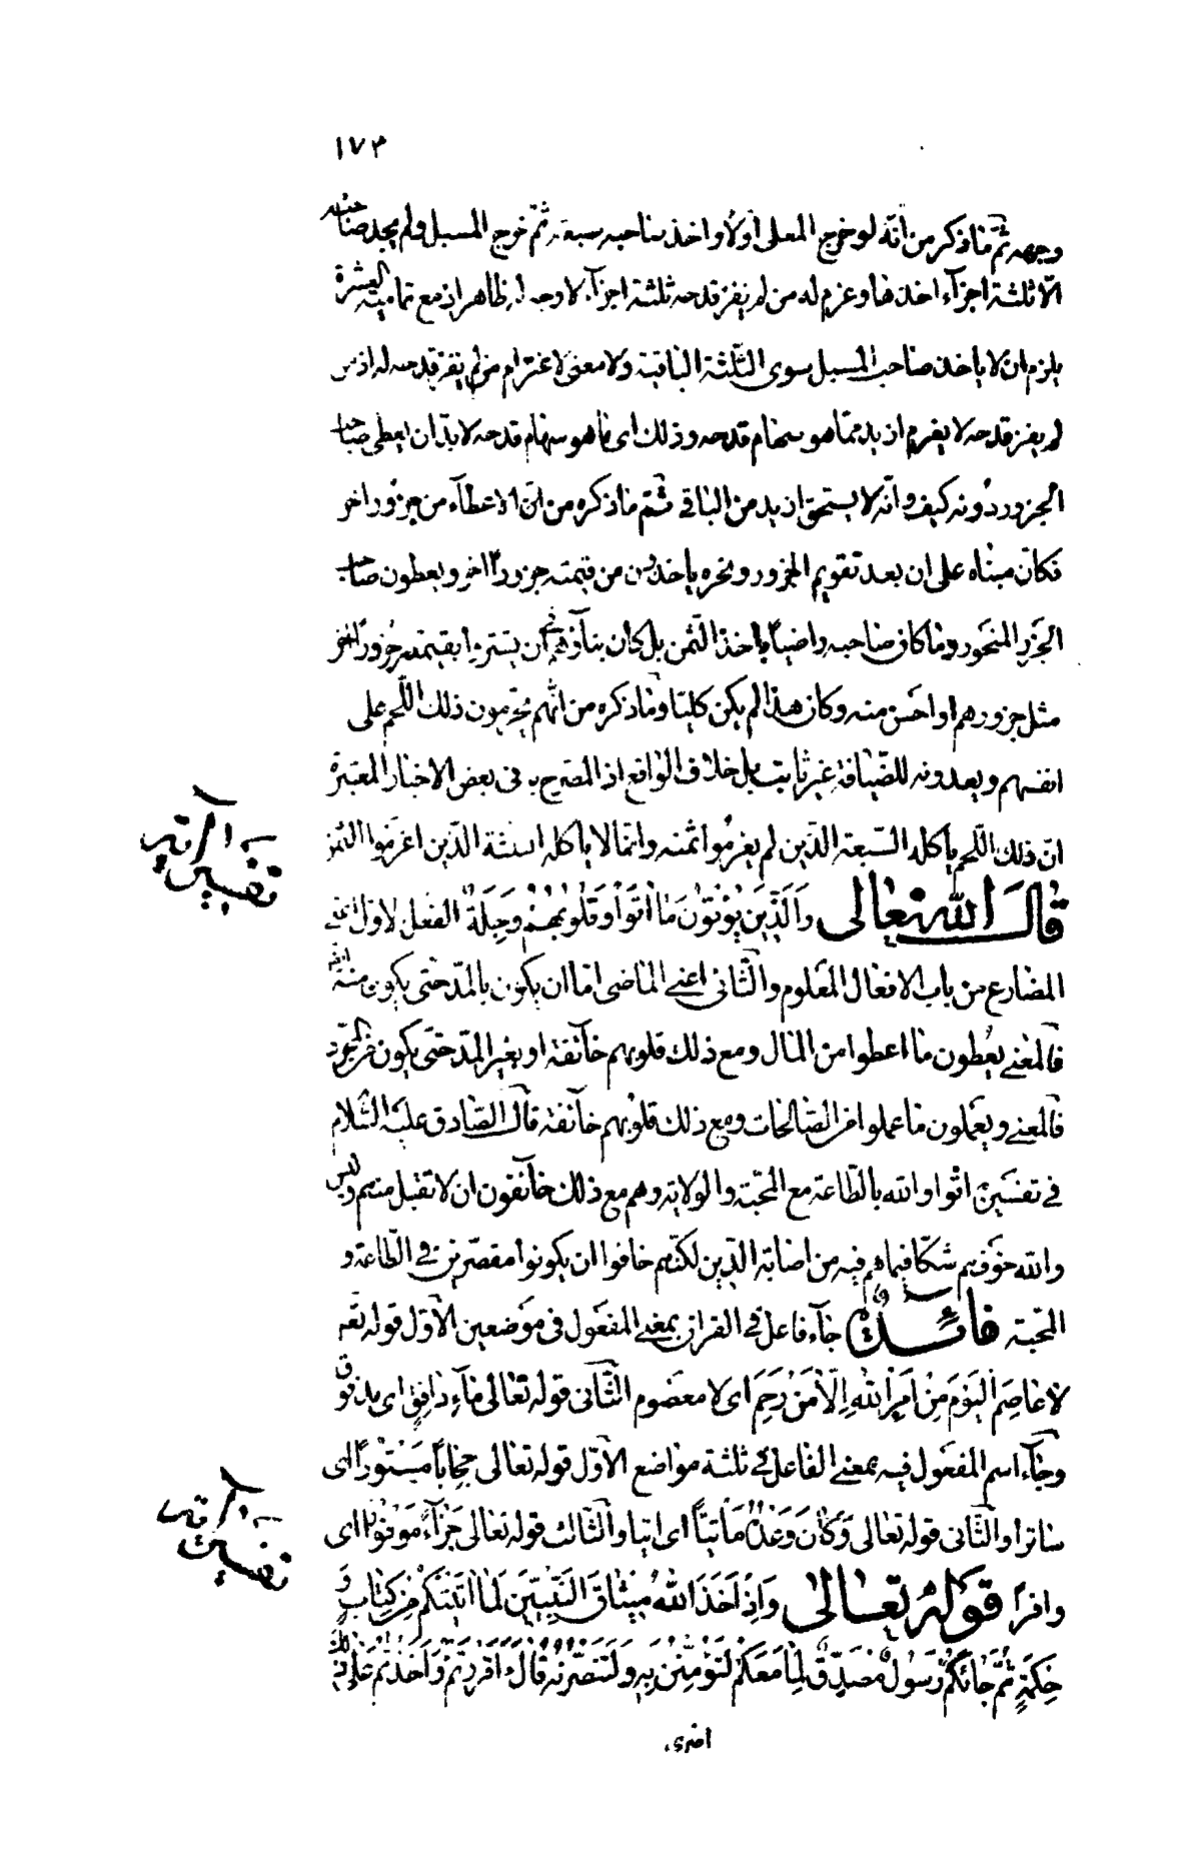 ١٧٣
وجهه ثم ما ذكر من انّه لو خرج المعلى اولا واخذ صاحبه سبعة ثم خرج المسبل ولم يجد صاحبه
الّا ثلثة اجزآء اخذها وغرم له من لم يفز قدحه ثلثة اجزآء لا وجه له ظاهرا اذ مع تمامية العشرة
يلزم ان لا ياخذ صاحب المسبل سوى الثّلثة الباقية ولا معنى لاغترام من لم يفز قدحه له اذ من
لم يفز قدحه لا يغرم ازيد مما هو سهام قدحه وذلك اى ما هو سهام قدحه لا بدّ ان يعطى صاحب
الجزور دونه كيف وانّه لا يستحق ازيد من الباقي ثم ما ذكره من انّ الاعطآء من جزور اخر
فكانّ مبناه على ان بعد تقويم الجزور ونحره ياخذون من قيمته جزوراً اخر ويعطون صاحب
الجزر المنحور وما كان صاحبه راضياً باخذ الثّمن بل كان بنآؤهم ان يشتروا بقيمته جزوراً اخر
مثل جزورهم او احسن منه وكان هذا لم يكن كليّا وما ذكره من انّهم يحرمون ذلك اللّحم على
انفسهم ويعدونه للضّيافة غير ثابت بل خلاف الواقع اذ المصرح به فى بعض الاخبار المعتبرة
انّ ذلك اللّحم ياكله السّبعة الّذين لم يغرموا ثمنه وانّما لا ياكله الثلثة الّذين اغرموا الثمن
قال الله تعالى وَالَّذِينَ يُؤْتُونَ مَا اتَوْا وَقُلُوبُهُمْ وَجِلَةٌ الفعل الاول اعنى
المضارع من باب الافعال المعلوم والثّانى اعنى الماضى امّا ان يكون بالمدّ حتى يكون منه ايضا
فالمعنى يعطون ما اعطوا من المال ومع ذلك قلوبهم خآئفة او بغير المدّ حتّى يكون من المجرّد
فالمعنى ويعملون ما عملوا من الصّالحات ومع ذلك قلوبهم خآئفة قال الصّادق عليه السّلام
فى تفسير اتوا والله بالطّاعة مع المحبّة والولاية وهم مع ذلك خآئفون ان لا تقبل منهم وليس
والله خوفهم شكّا فيما هم فيه من اصابة الدّين لكنّهم خافوا ان يكونوا مقصّرين فى الطّاعة و
المحبّة فائدة جآء فاعل فى القران بمعنى المفعول فى موضعين الاوّل قوله تعه
لا عَاصِمَ الْيَوْمَ مِنْ اَمْرِ اللهِ اِلّا مَنْ رَحِمَ اى لا معصوم الثّانى قوله تعالى مآءٍ دَافِقٍ اى مدفوق
وجآء اسم المفعول فيه بمعنى الفاعل فى ثلثة مواضع الاوّل قوله تعالى حِجَاباً مَسْتُوراً اى
ساترا والثّانى قوله تعالى وَكَانَ وَعْدُهُ مَأتِيّاً اى اتيا والثّالث قوله تعالى جَزآءً مَوْفُوراً اى
وافراً قوله تعالى وَاِذْ اَخَذَ اللهُ مِيثَاقَ النَّبِيّينَ لَمَا اتَيْتُكُمْ مِنْ كِتَابٍ وَ
حِكْمَةٍ ثُمَّ جَائَكُمْ رَسُولٌ مُصَدِّقٌ لِمَا مَعَكُمْ لَتُؤْمِنُنَّ بِهِ وَلَتَنْصُرُنَّهُ قَالَ ءَاَقْرَرْتُمْ وَاَخَذْتُمْ عَلَى ذلِكُمْ
اصرى
تفسير آية
تفسير آية